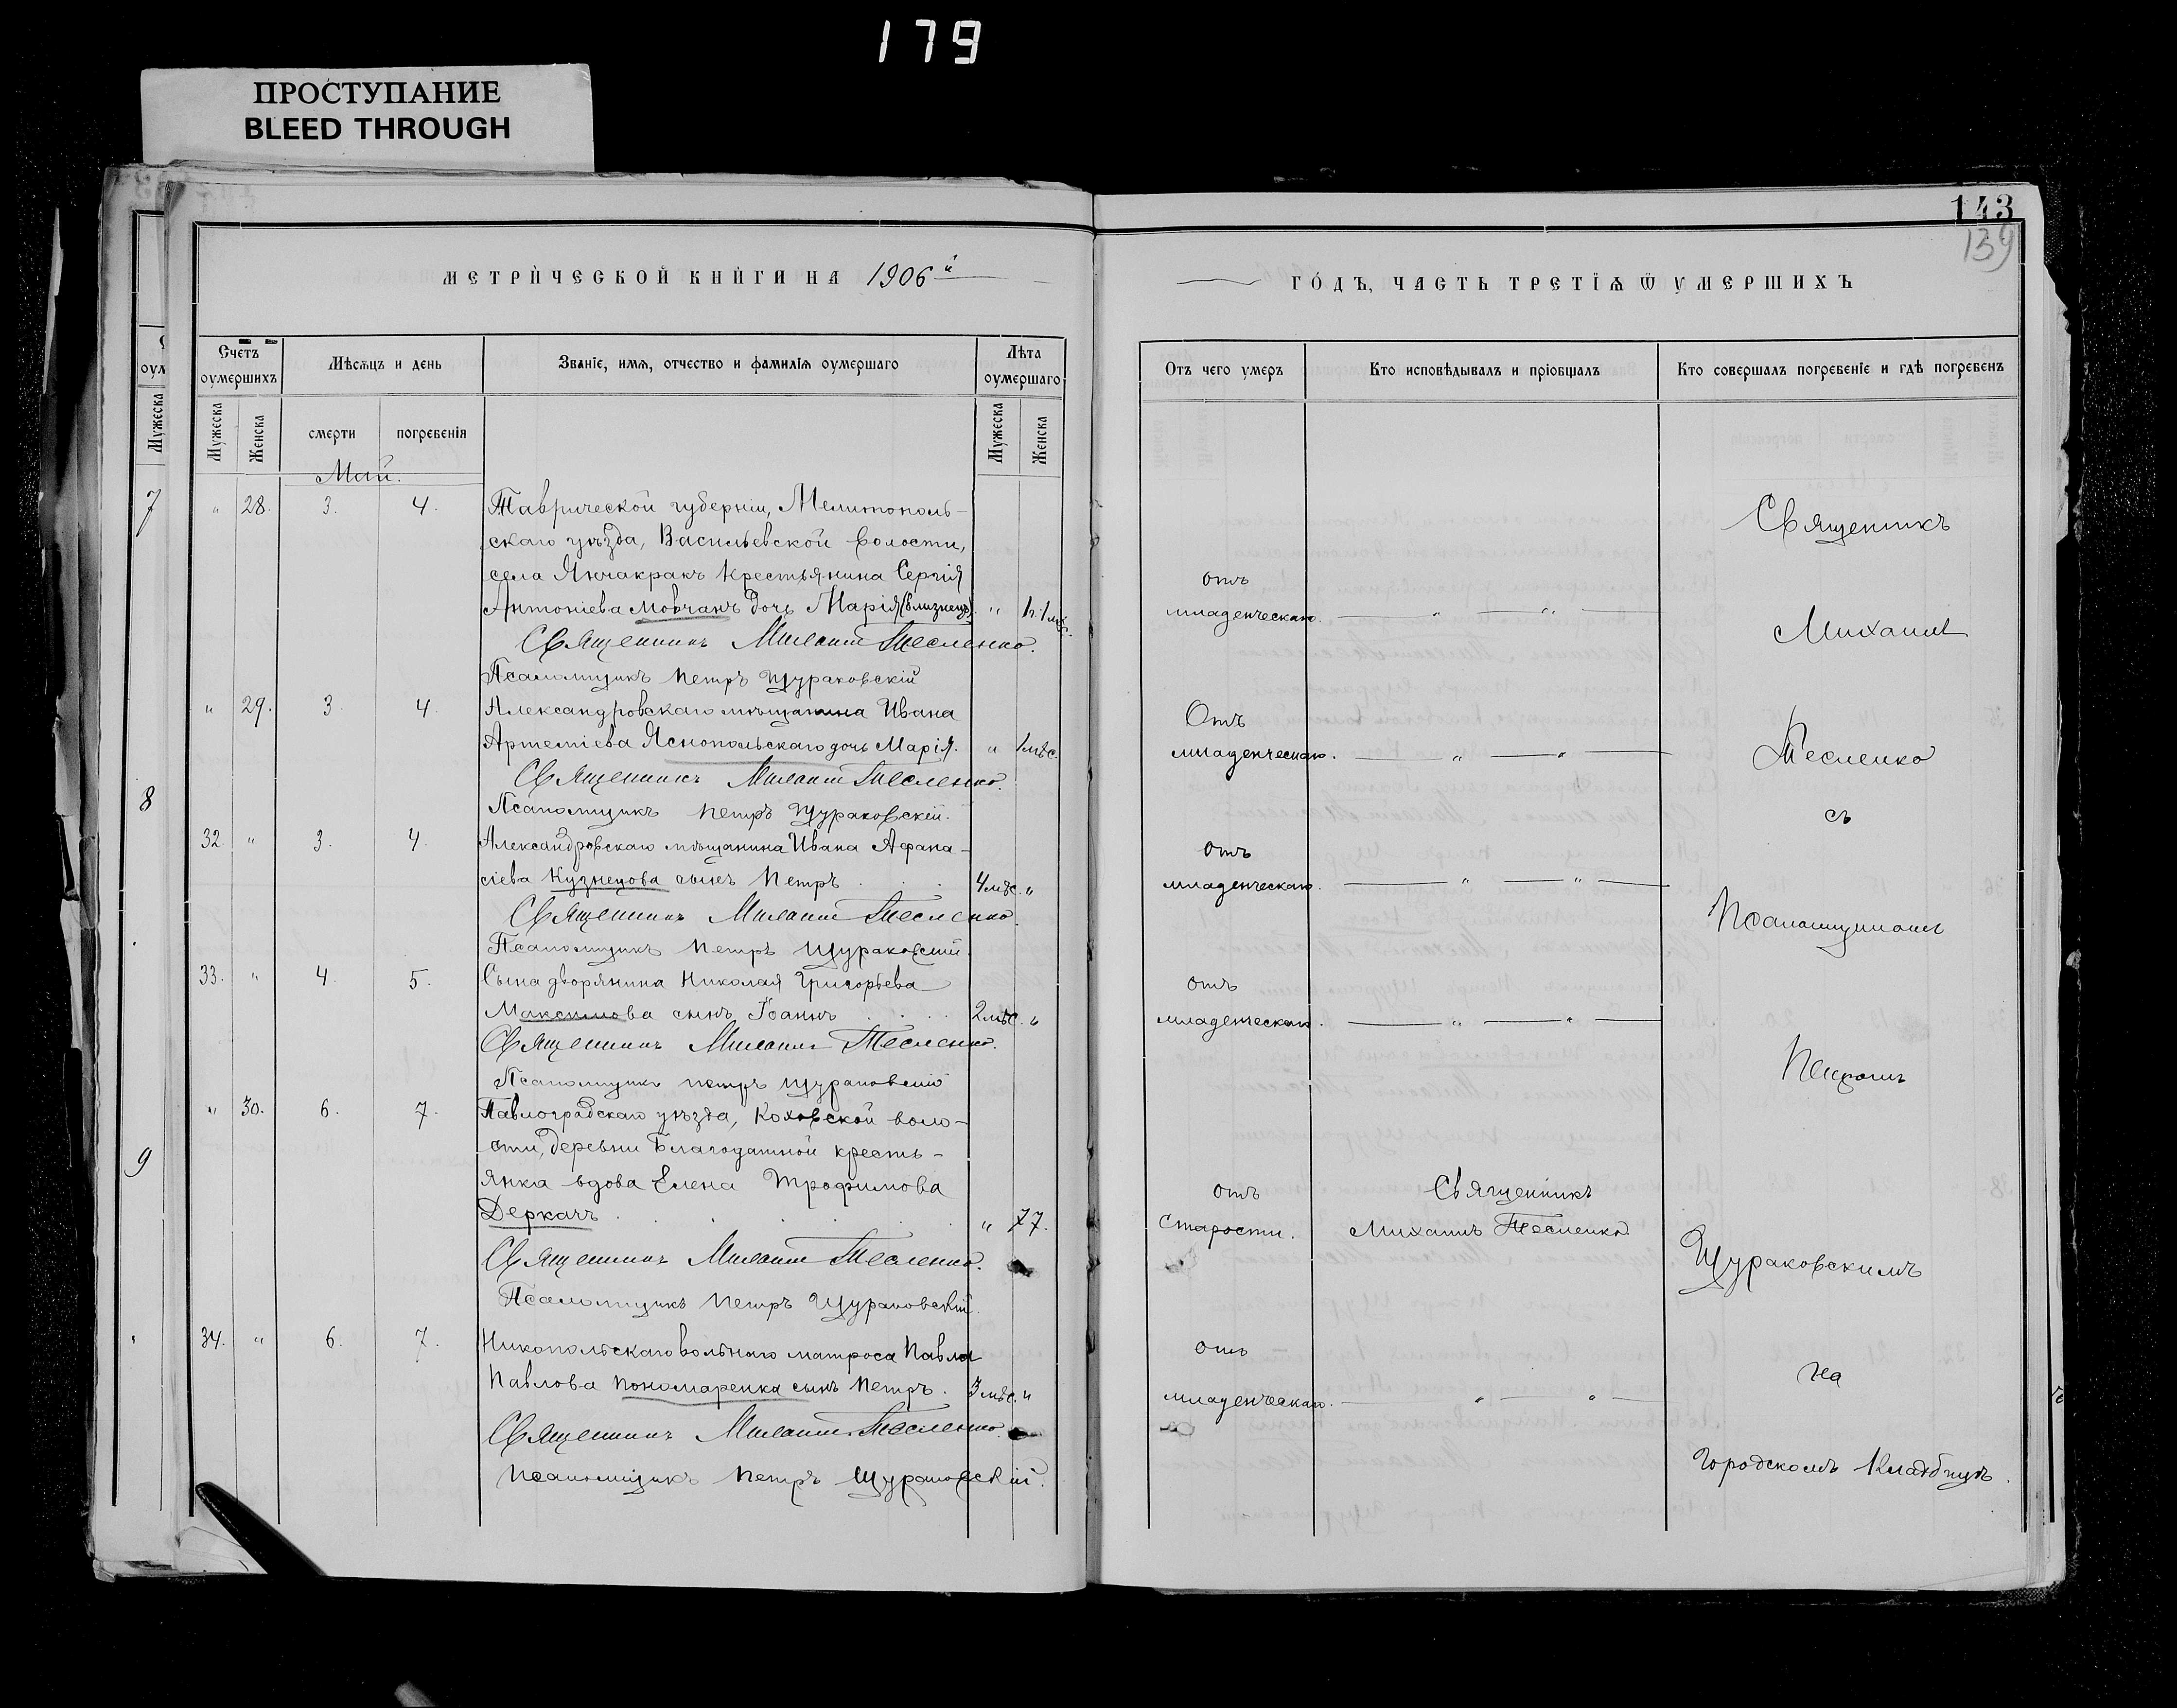 179
ПРОСТУПАНИЕ
BLEED THROUGH
143
139
МЕТРИ́ЧЕСКОЙ КНИ́ГИ НА 1906й
ГО́ДЪ, ЧАСТЬ ТРЕТІѦ Ѿ УМЕРШИХЪ
Счетъ оумершихъ
Мѣсѧцъ и день
Званіе, имѧ, отчество и фамиліѧ оумершаго
Лѣта оумершаго
Отъ чего умеръ
Кто исповѣдывалъ и пріобщалъ
Кто совершалъ погребеніе и гдѣ погребенъ
Мужеска
Женска
смерти
погребенія
Мужеска
Женска
Май.
7
" 28. 3. 4. Таврической губерніи, Мелитополь-
скаго уѣзда, Васильевской волости,
села Янчакракъ крестьянина Сергія
Антоніева Мовчанъ дочь Марія (близнецъ) "
отъ
младенческаго.
Священникъ Михаилъ Тесленко.
Псаломщикъ Петръ Щураковскій
" 29. 3. 4. Александровскаго мѣщанина Ивана
Артеміева Яснопольскаго дочь Марія. " 1 мѣс.
Отъ
младенческаго.
Священникъ Михаилъ Тесленко.
Псаломщикъ Петръ Щураковскій.
8
32. " 3. 4. Александровскаго мѣщанина Ивана Афана-
сіева Кузнецова сынъ Петръ 4 мѣс. "
отъ
младенческаго.
Священникъ Михаилъ Тесленко.
Псаломщикъ Петръ Щураковскій.
33. " 4. 5. Сына дворянина Николая Григорьева
Максимова сынъ Іоаннъ 2 мѣс. "
отъ
младенческаго.
Священникъ Михаилъ Тесленко.
Псаломщикъ Петръ Щураковскій
" 30. 6. 7. Павлоградскаго уѣзда, Коховской воло-
сти, деревни Благодатной кресть-
янка вдова Елена Трофимова
Деркачъ " 77.
9
отъ
старости.
Священникъ
Михаилъ Тесленко.
Священникъ Михаилъ Тесленко.
Псаломщикъ Петръ Щураковскій.
34. " 6. 7. Никопольскаго вольнаго матроса Павла
Павлова Пономаренка сынъ Петръ. 3 мѣс. "
отъ
младенческаго.
Священникъ Михаилъ Тесленко.
Псаломщикъ Петръ Щураковскій.
Священникъ
Михаилъ
Тесленко
съ
Псаломщикомъ
Петромъ
Щураковскимъ
на
Городскомъ Кладбищѣ.